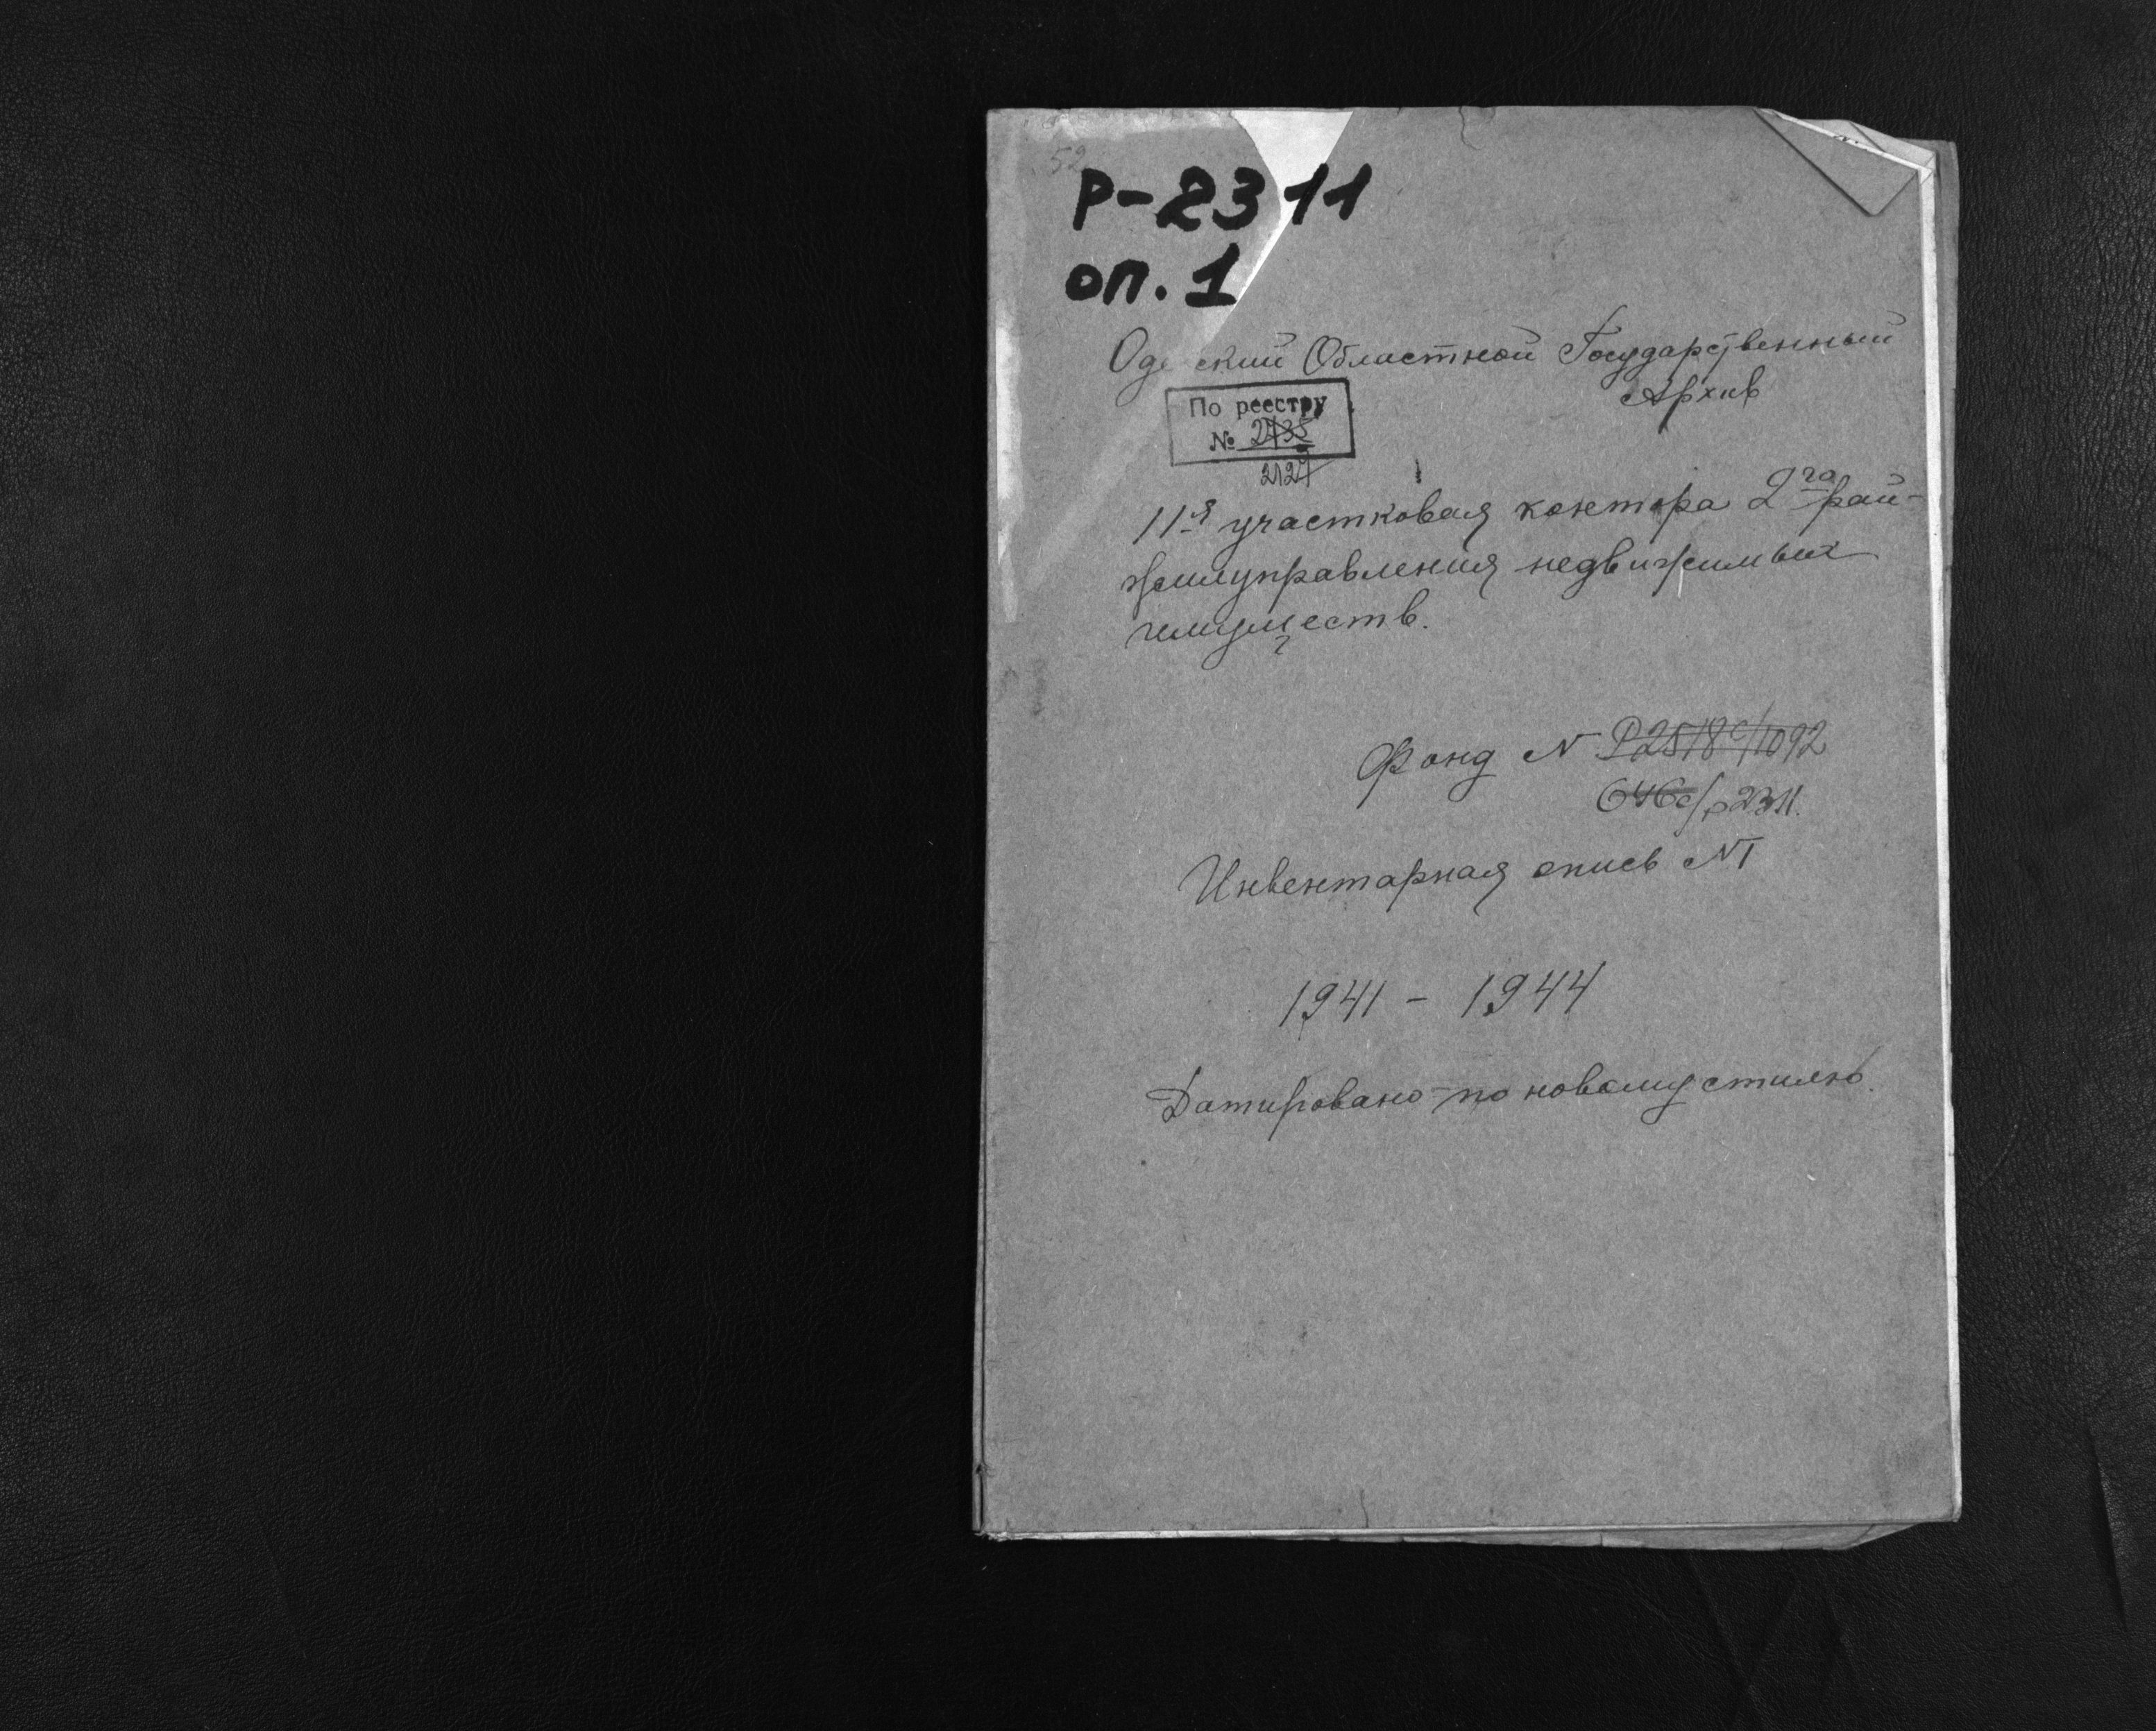 52
Р-2311
оп.1
Оде ский Областной Государственный
Архив
По реестру
№ 2735
2127
11-я участковая контора 2го рай-
жилуправления недвижимых
имуществ.
Фонд N Р2518с/1092
646с/р2311.
Инвентарная опись N1
1941 - 1944
Датировано по новому стилю.